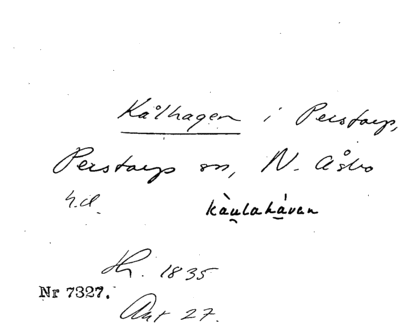 Kålhagen i Perstorp,
Perstorps sn, N. Åsbo
hd. kàulahàvan
Hr. 1835
Nr 7327.
Ant 27.